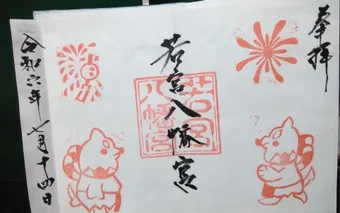 奉拝
若宮八幡宮
若宮八幡宮
令和六年七月十四日